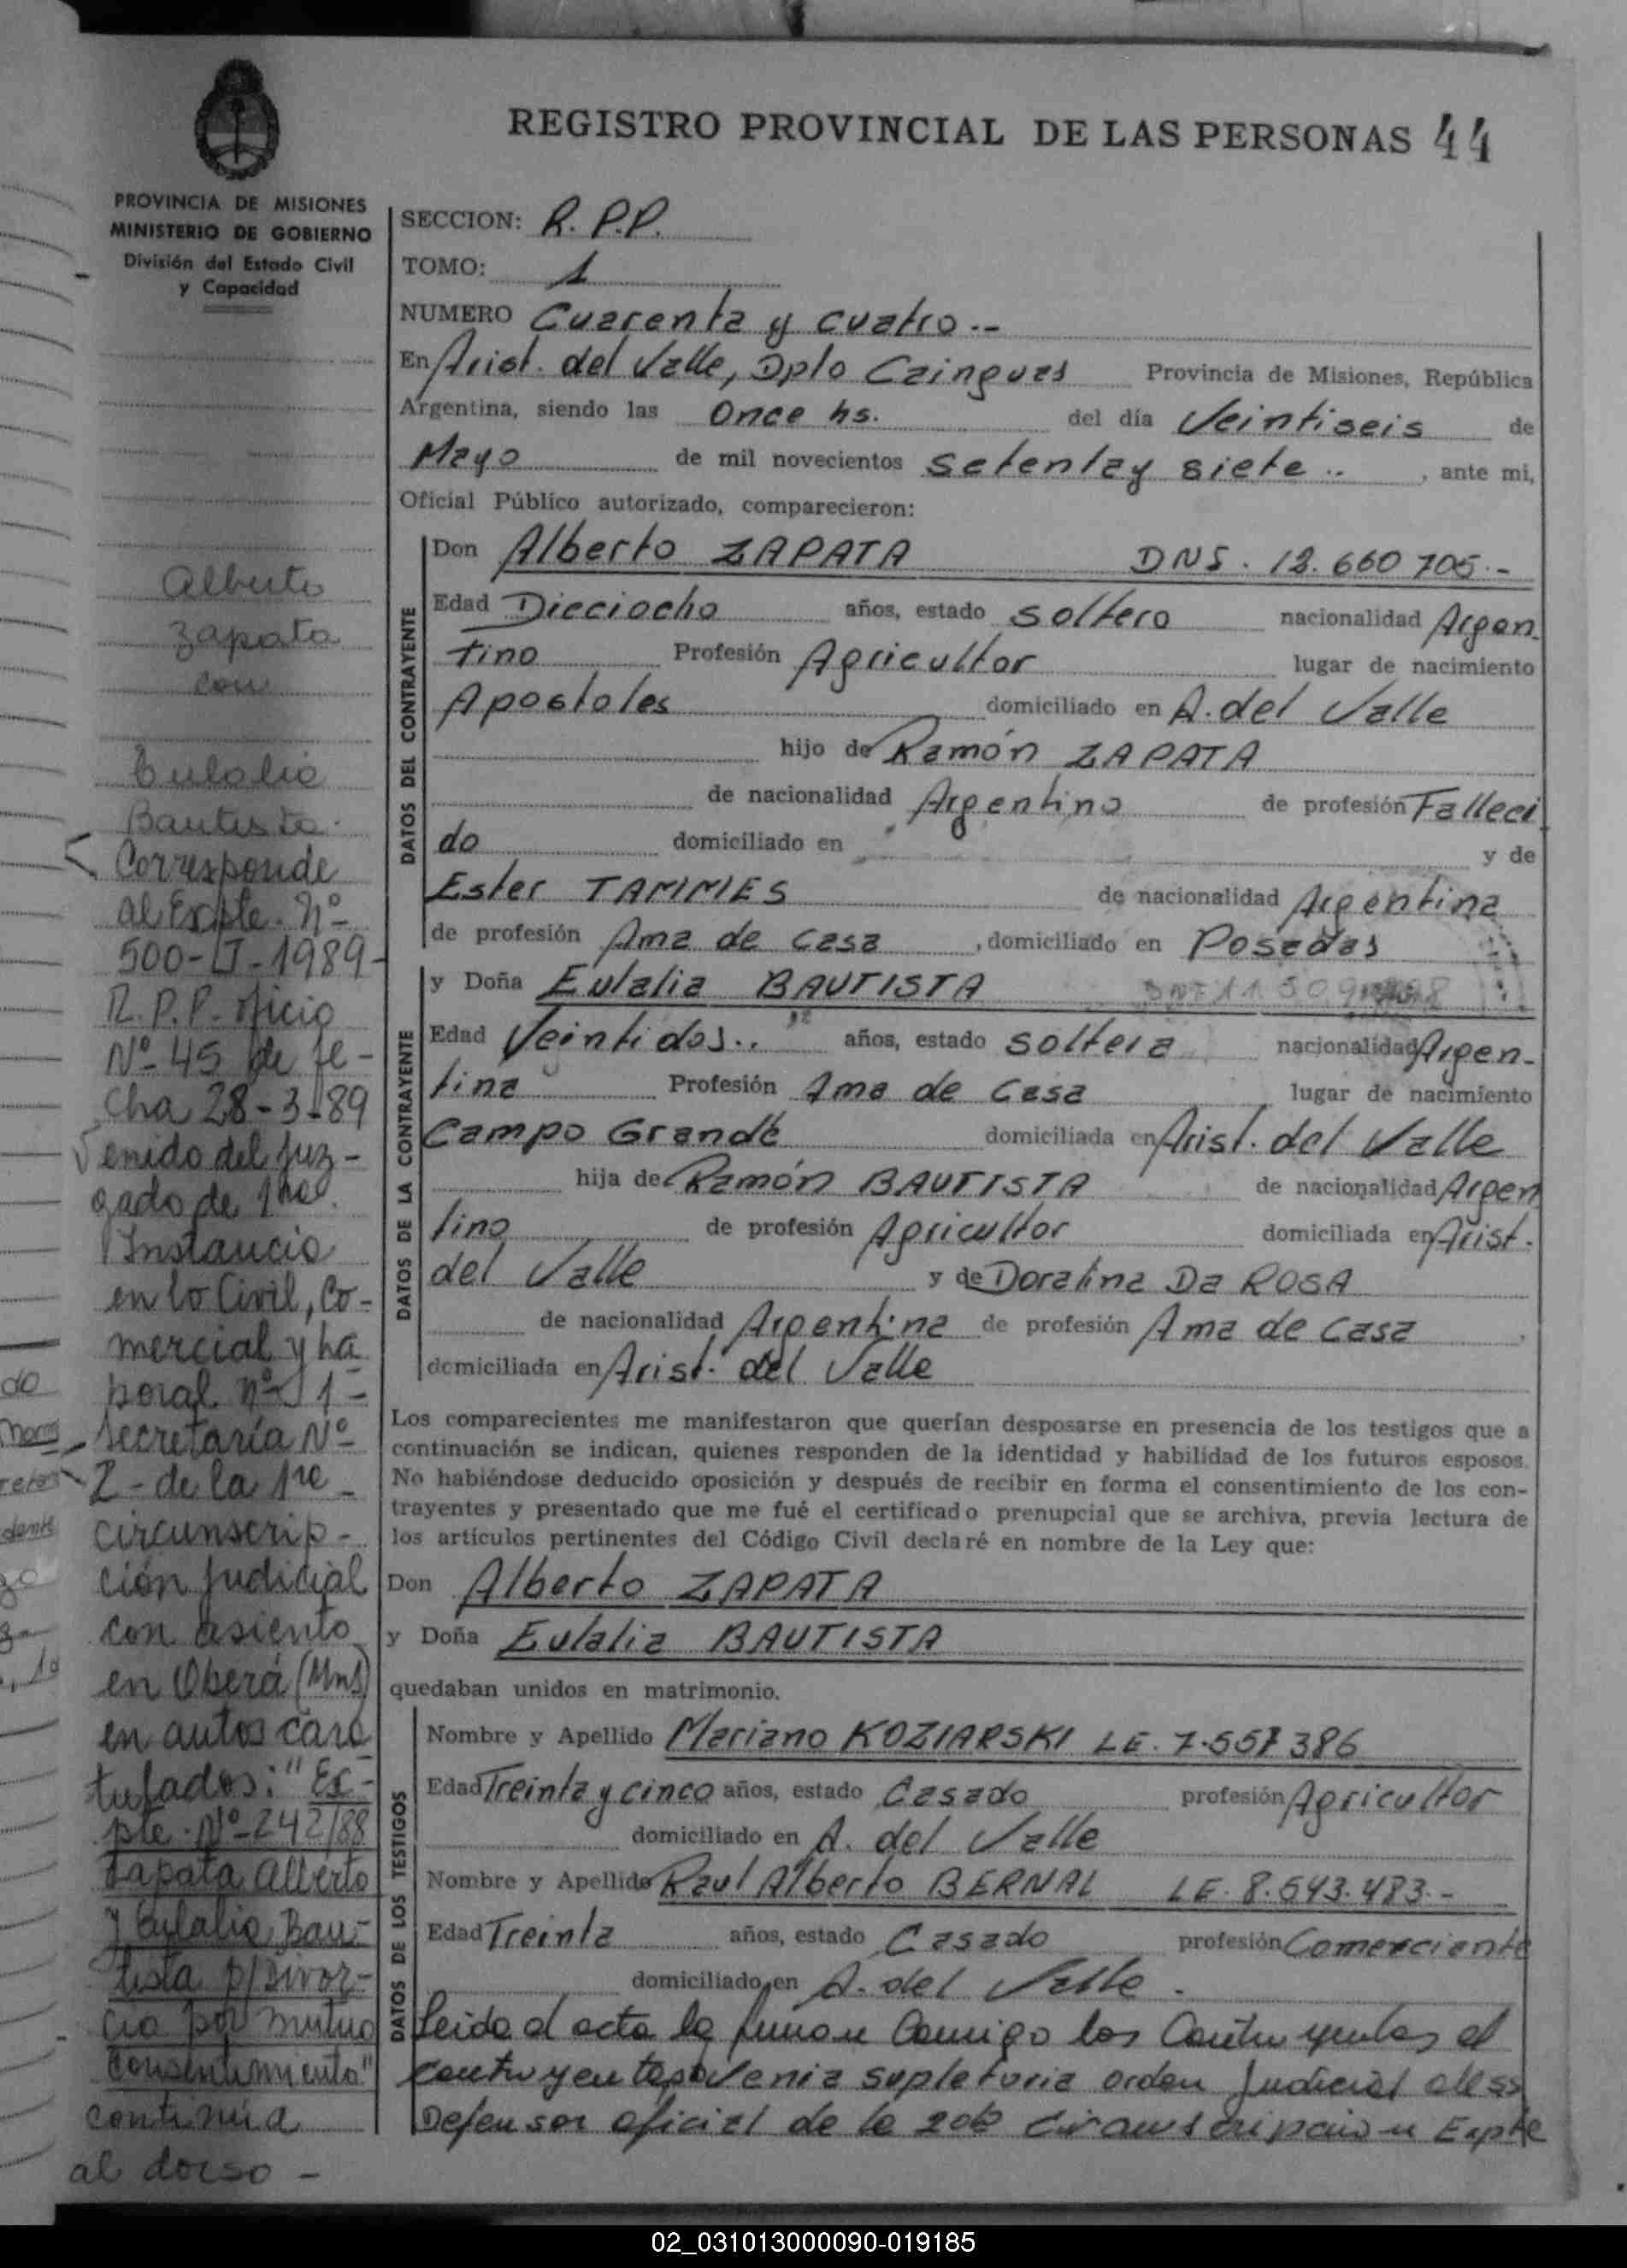 REGISTRO PROVINCIAL DE LAS PERSONAS 44
PROVINCIA DE MISIONES
MINISTERIO DE GOBIERNO
División del Estado Civil
y Capacidad
SECCION: R. P.P.
TOMO: 1
NUMERO Cuarenta y cuatro.--
En Arist. del Valle, Dpto Cainguas Provincia de Misiones, República
Argentina, siendo las Once hs. del día Veintiseis de
Mayo de mil novecientos setenta y siete.. , ante mi,
Oficial Público autorizado, comparecieron:
DATOS DEL CONTRAYENTE
Don Alberto ZAPATA DNI. 12.660 705.-
Edad Dieciocho años, estado soltero nacionalidad Argen
tino Profesión Agricultor lugar de nacimiento
Apostoles domiciliado en A. del Valle
hijo de Ramón ZAPATA
de nacionalidad Argentino de profesión Falleci
do domiciliado en y de
Ester TAMMES de nacionalidad Argentina
de profesión Ama de casa , domiciliado en Posadas
DATOS DE LA CONTRAYENTE
y Doña Eulalia BAUTISTA
Edad Veintidos.. años, estado soltera nacionalidad Argen-
tina Profesión Ama de Casa lugar de nacimiento
Campo Grande domiciliada en Arist. del Valle
hija de Ramón BAUTISTA de nacionalidad Argen
tino de profesión Agricultor domiciliada en Arist.
del Valle y de Doralina Da ROSA
de nacionalidad Argentina de profesión Ama de Casa
domiciliada en Arist. del Valle
Los comparecientes me manifestaron que querían desposarse en presencia de los testigos que a
continuación se indican, quienes responden de la identidad y habilidad de los futuros esposos.
No habiéndose deducido oposición y después de recibir en forma el consentimiento de los con-
trayentes y presentado que me fué el certificado prenupcial que se archiva, previa lectura de
los artículos pertinentes del Código Civil declaré en nombre de la Ley que:
Don Alberto ZAPATA
y Doña Eulalia BAUTISTA
quedaban unidos en matrimonio.
DATOS DE LOS TESTIGOS
Nombre y Apellido Mariano KOZIARSKI LE. 7.557 386
Edad Treinta y cinco años, estado Casado profesión Agricultor
domiciliado en A. del Valle
Nombre y Apellido Raul Alberto BERNAL LE. 8.543.483.-
Edad Treinta años, estado Casado profesión Comerciante
domiciliado en A. del Valle.
Leida el acta la conmigo los el
Venia supletoria orden Judicial
Defensor oficial de la Expte
Alberto
Zapata
con
Eulalia
Bautista.
Corresponde
al Expte. nº
500-LJ-1989-
R.P.P. oficio
Nº 45 de fe-
cha 28-3-89
venido del Juz-
gado de 1ra.
Instancia
en lo Civil, Co-
mercial y La
boral nº 1-
Secretaría Nº
2- de la 1ra
circunscrip-
ción judicial
con asiento
en Oberá (Mns)
en autos cara
tulados: "Ex-
pte. Nº 242/88
Zapata Alberto
y Eulalia Bau-
tista p/Divor-
cio por mutuo
consentimiento"
continúa
al dorso -
02_031013000090-019185